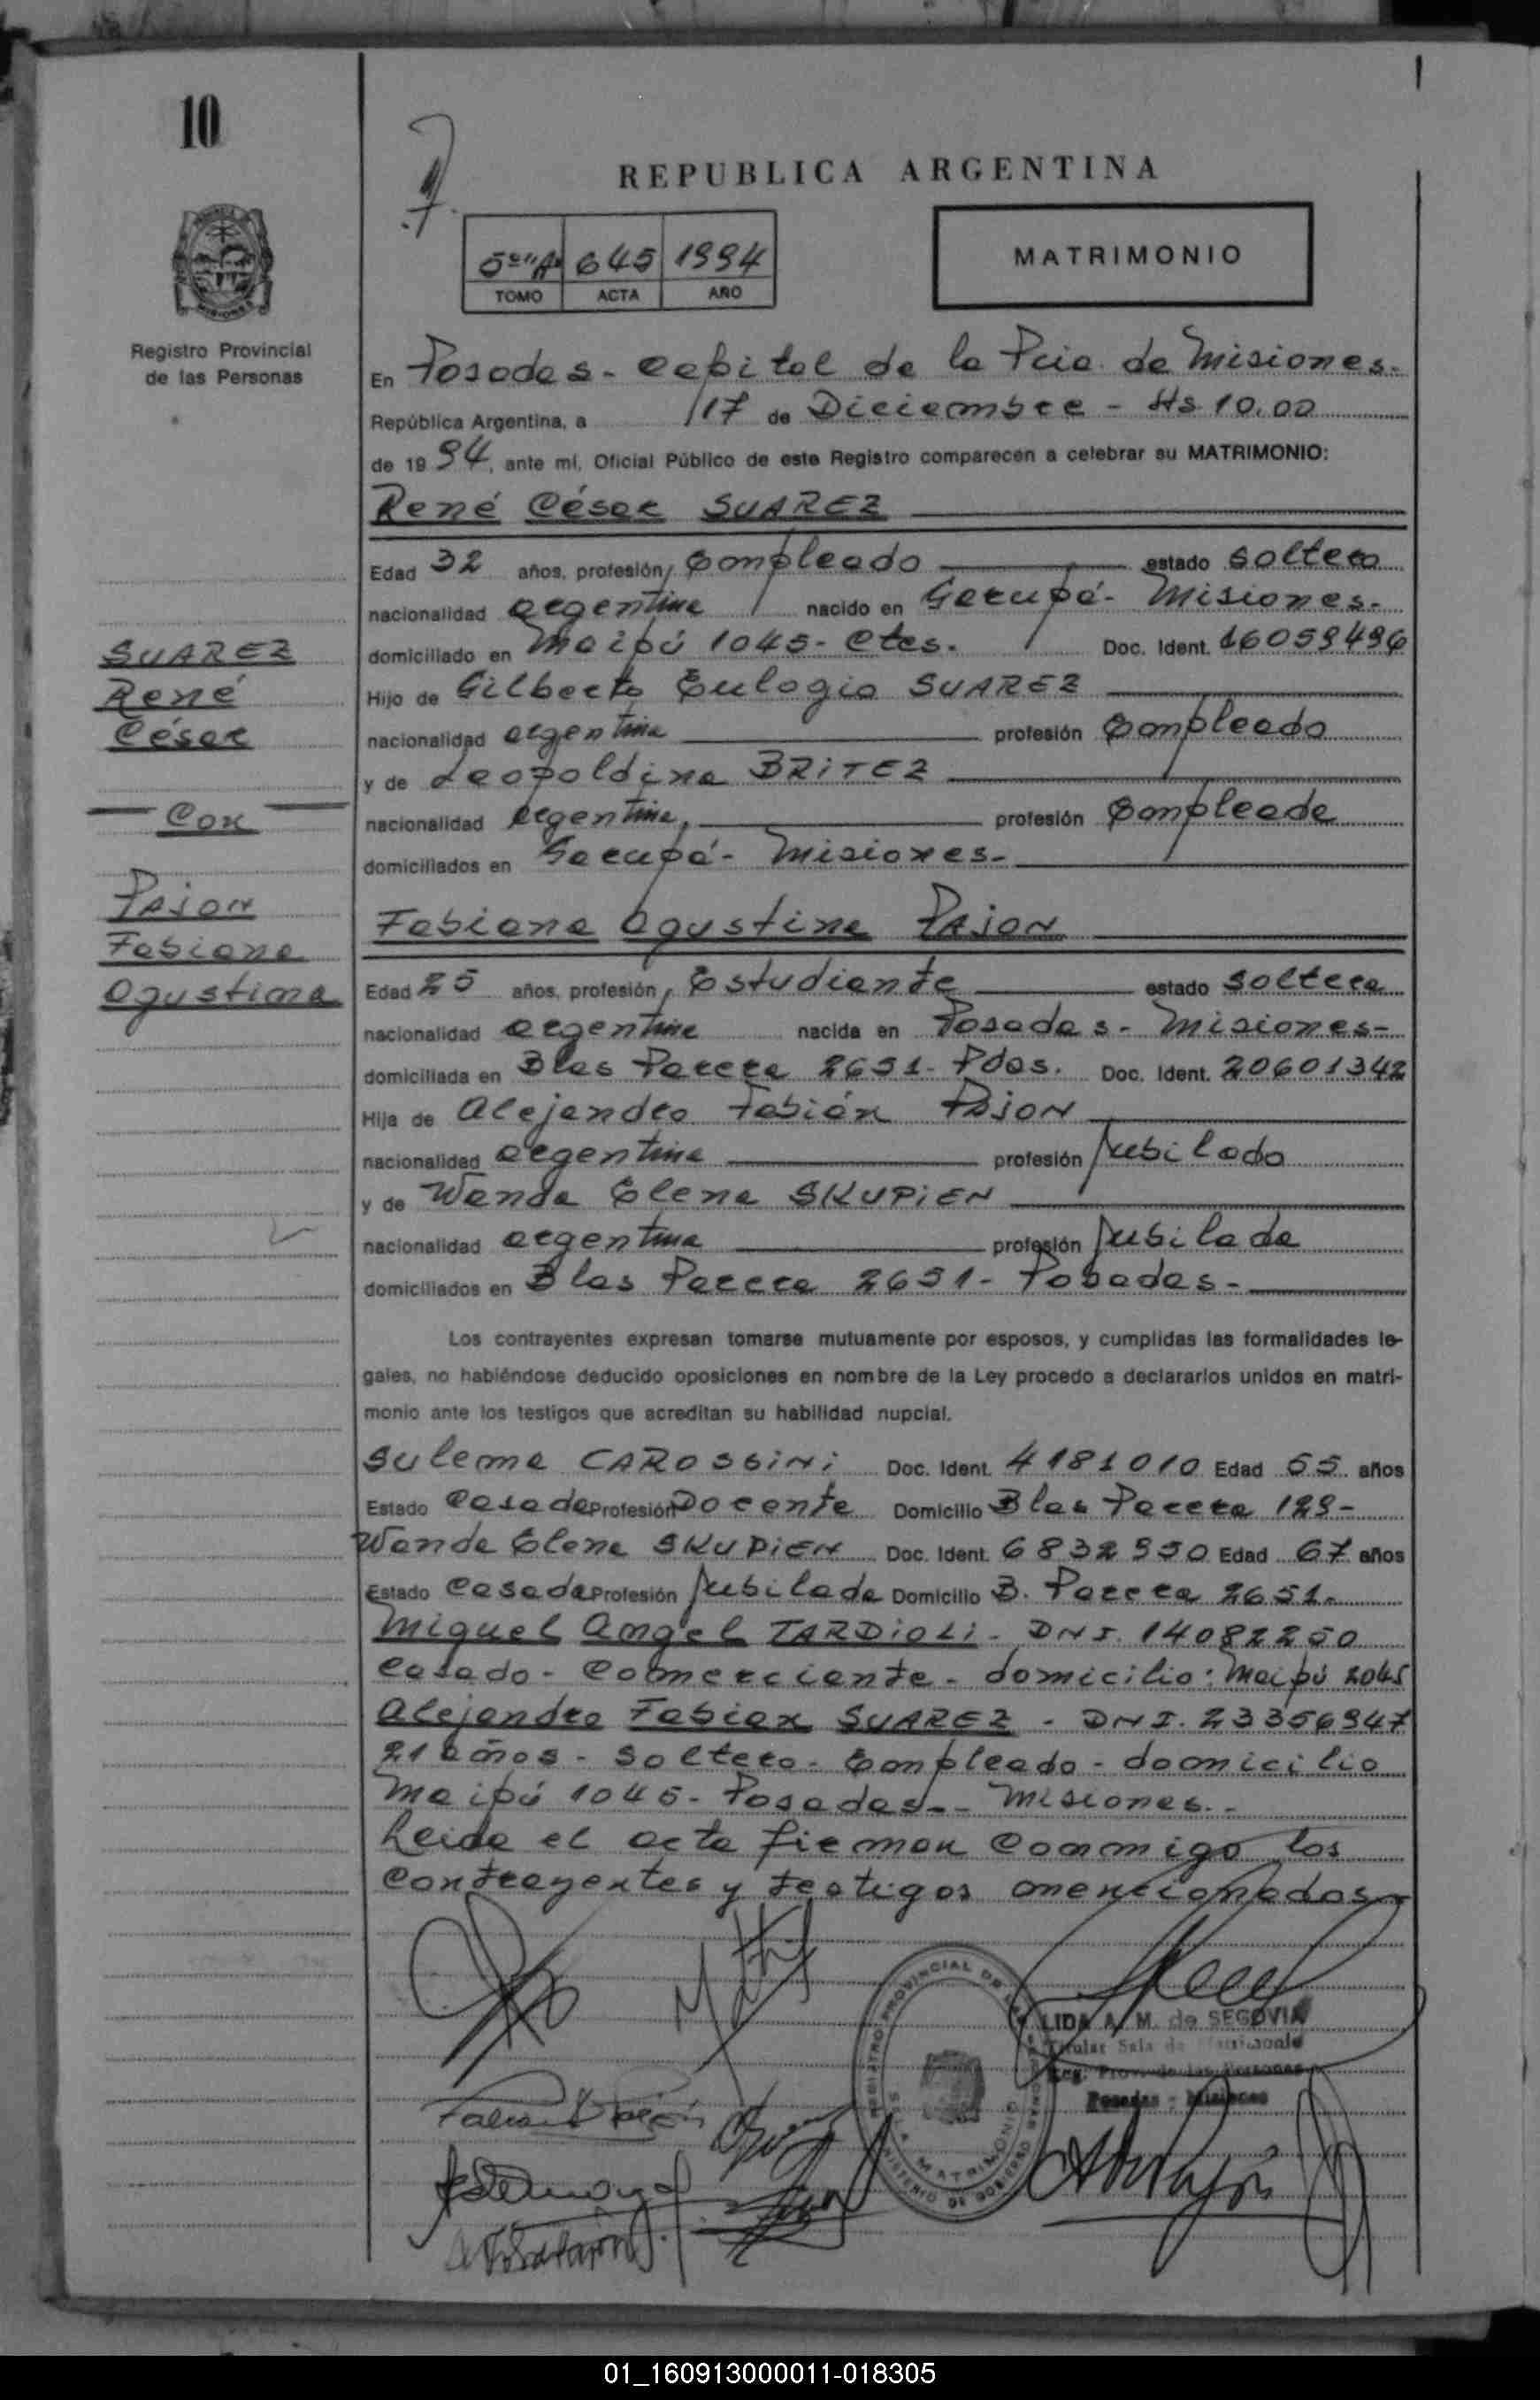 10
REPUBLICA ARGENTINA
5º "A" 645 1994
TOMO ACTA AÑO
MATRIMONIO
Registro Provincial
de las Personas
En Posadas - Capital de la Pcia. de Misiones.
República Argentina, a 17 de Diciembre - Hs 10,00
de 1994, ante mí, Oficial Público de este Registro comparecen a celebrar su MATRIMONIO:
René César SUAREZ
Edad 32 años, profesión, Empleado estado soltero
nacionalidad argentina nacido en Garupá - Misiones.
domiciliado en Maipú 1045 - Ctes. Doc. Ident. 16059496
Hijo de Gilberto Eulogio SUAREZ
nacionalidad argentina profesión Empleado
y de Leopoldina BRITEZ
nacionalidad argentina, profesión Empleada
domiciliados en Garupá - Misiones.
SUAREZ
René
César
Con
PAJON
Fabiana
Agustina
Fabiana Agustina PAJON
Edad 25 años, profesión, Estudiante estado soltera
nacionalidad argentina nacida en Posadas - Misiones -
domiciliada en Blas Parera 2651 - Pdas. Doc. Ident. 20601342
Hija de Alejandro Fabián PAJON
nacionalidad argentina profesión Jubilado
y de Wanda Elena SKUPIEN
nacionalidad argentina profesión Jubilada
domiciliados en Blas Parera 2651 - Posadas -
Los contrayentes expresan tomarse mutuamente por esposos, y cumplidas las formalidades le-
gales, no habiéndose deducido oposiciones en nombre de la Ley procedo a declararlos unidos en matri-
monio ante los testigos que acreditan su habilidad nupcial.
Sulema CAROSSINI Doc. Ident. 4181010 Edad 55 años
Estado Casada Profesión Docente Domicilio Blas Parera 129 -
Wanda Elena SKUPIEN Doc. Ident. 6832950 Edad 67 años
Estado Casada Profesión Jubilada Domicilio B. Parera 2651.
Miguel Angel TARDIOLI - DNI. 14082250
Casado - Comerciante - domicilio: Maipú 2045
Alejandro Fabian SUAREZ - DNI. 23356947
21 años - Soltero - Empleado - domicilio
Maipú 1045 - Posadas - Misiones. -
Leida el acta firman conmigo los
contrayentes y testigos mencionados
LIDA A. M. de SEGOVIA
Titular Sala de Matrimonio
Reg. Prov. de las Personas
Posadas - Misiones
REGISTRO PROVINCIAL DE LAS PERSONAS
SALA MATRIMONIO
MINISTERIO DE GOBIERNO
01_160913000011-018305